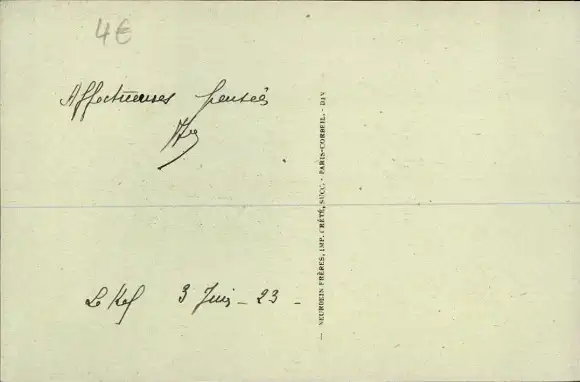 4€
Affectueuses pensées
Le Kef 3 Juin - 23 -
— NEURDEIN FRÈRES, IMP. CRÉTÉ, SUCC. - PARIS-CORBEIL. -